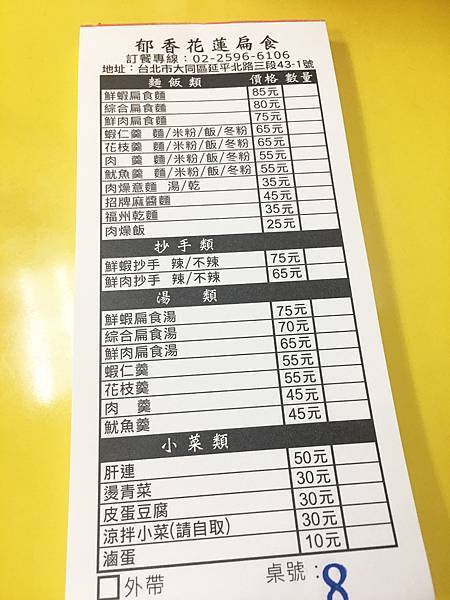 郁香花蓮扁食
訂餐專線：02-2596-6106
地址：台北市大同區延平北路三段43-1號
麵飯類 價格 數量
鮮蝦扁食麵 85元
綜合扁食麵 80元
鮮肉扁食麵 75元
蝦仁羹 麵/米粉/飯/冬粉 65元
花枝羹 麵/米粉/飯/冬粉 65元
肉 羹 麵/米粉/飯/冬粉 55元
魷魚羹 麵/米粉/飯/冬粉 55元
肉燥意麵 湯/乾 35元
招牌麻醬麵 45元
福州乾麵 35元
肉燥飯 25元
抄手類
鮮蝦抄手 辣/不辣 75元
鮮肉抄手 辣/不辣 65元
湯 類
鮮蝦扁食湯 75元
綜合扁食湯 70元
鮮肉扁食湯 65元
蝦仁羹 55元
花枝羹 55元
肉 羹 45元
魷魚羹 45元
小菜類
肝連 50元
燙青菜 30元
皮蛋豆腐 30元
涼拌小菜(請自取) 30元
滷蛋 10元
外帶 桌號：8